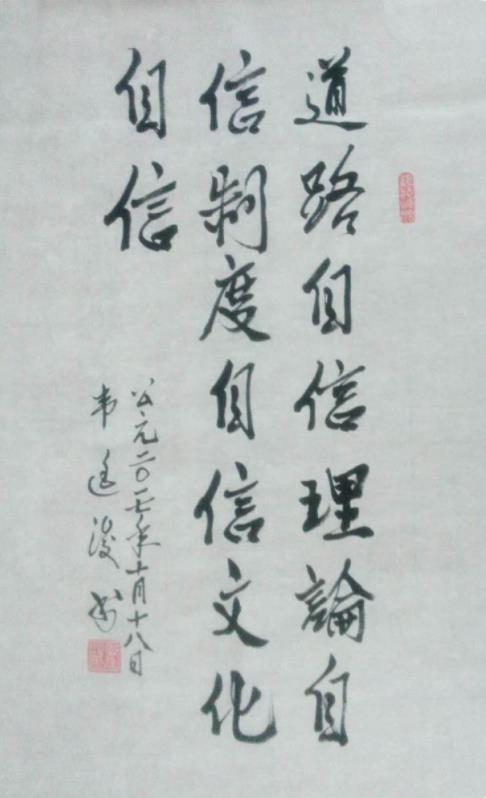 道路自信理論自
信制度自信文化
自信
公元二〇一七年十月十八日
韦廷浚书